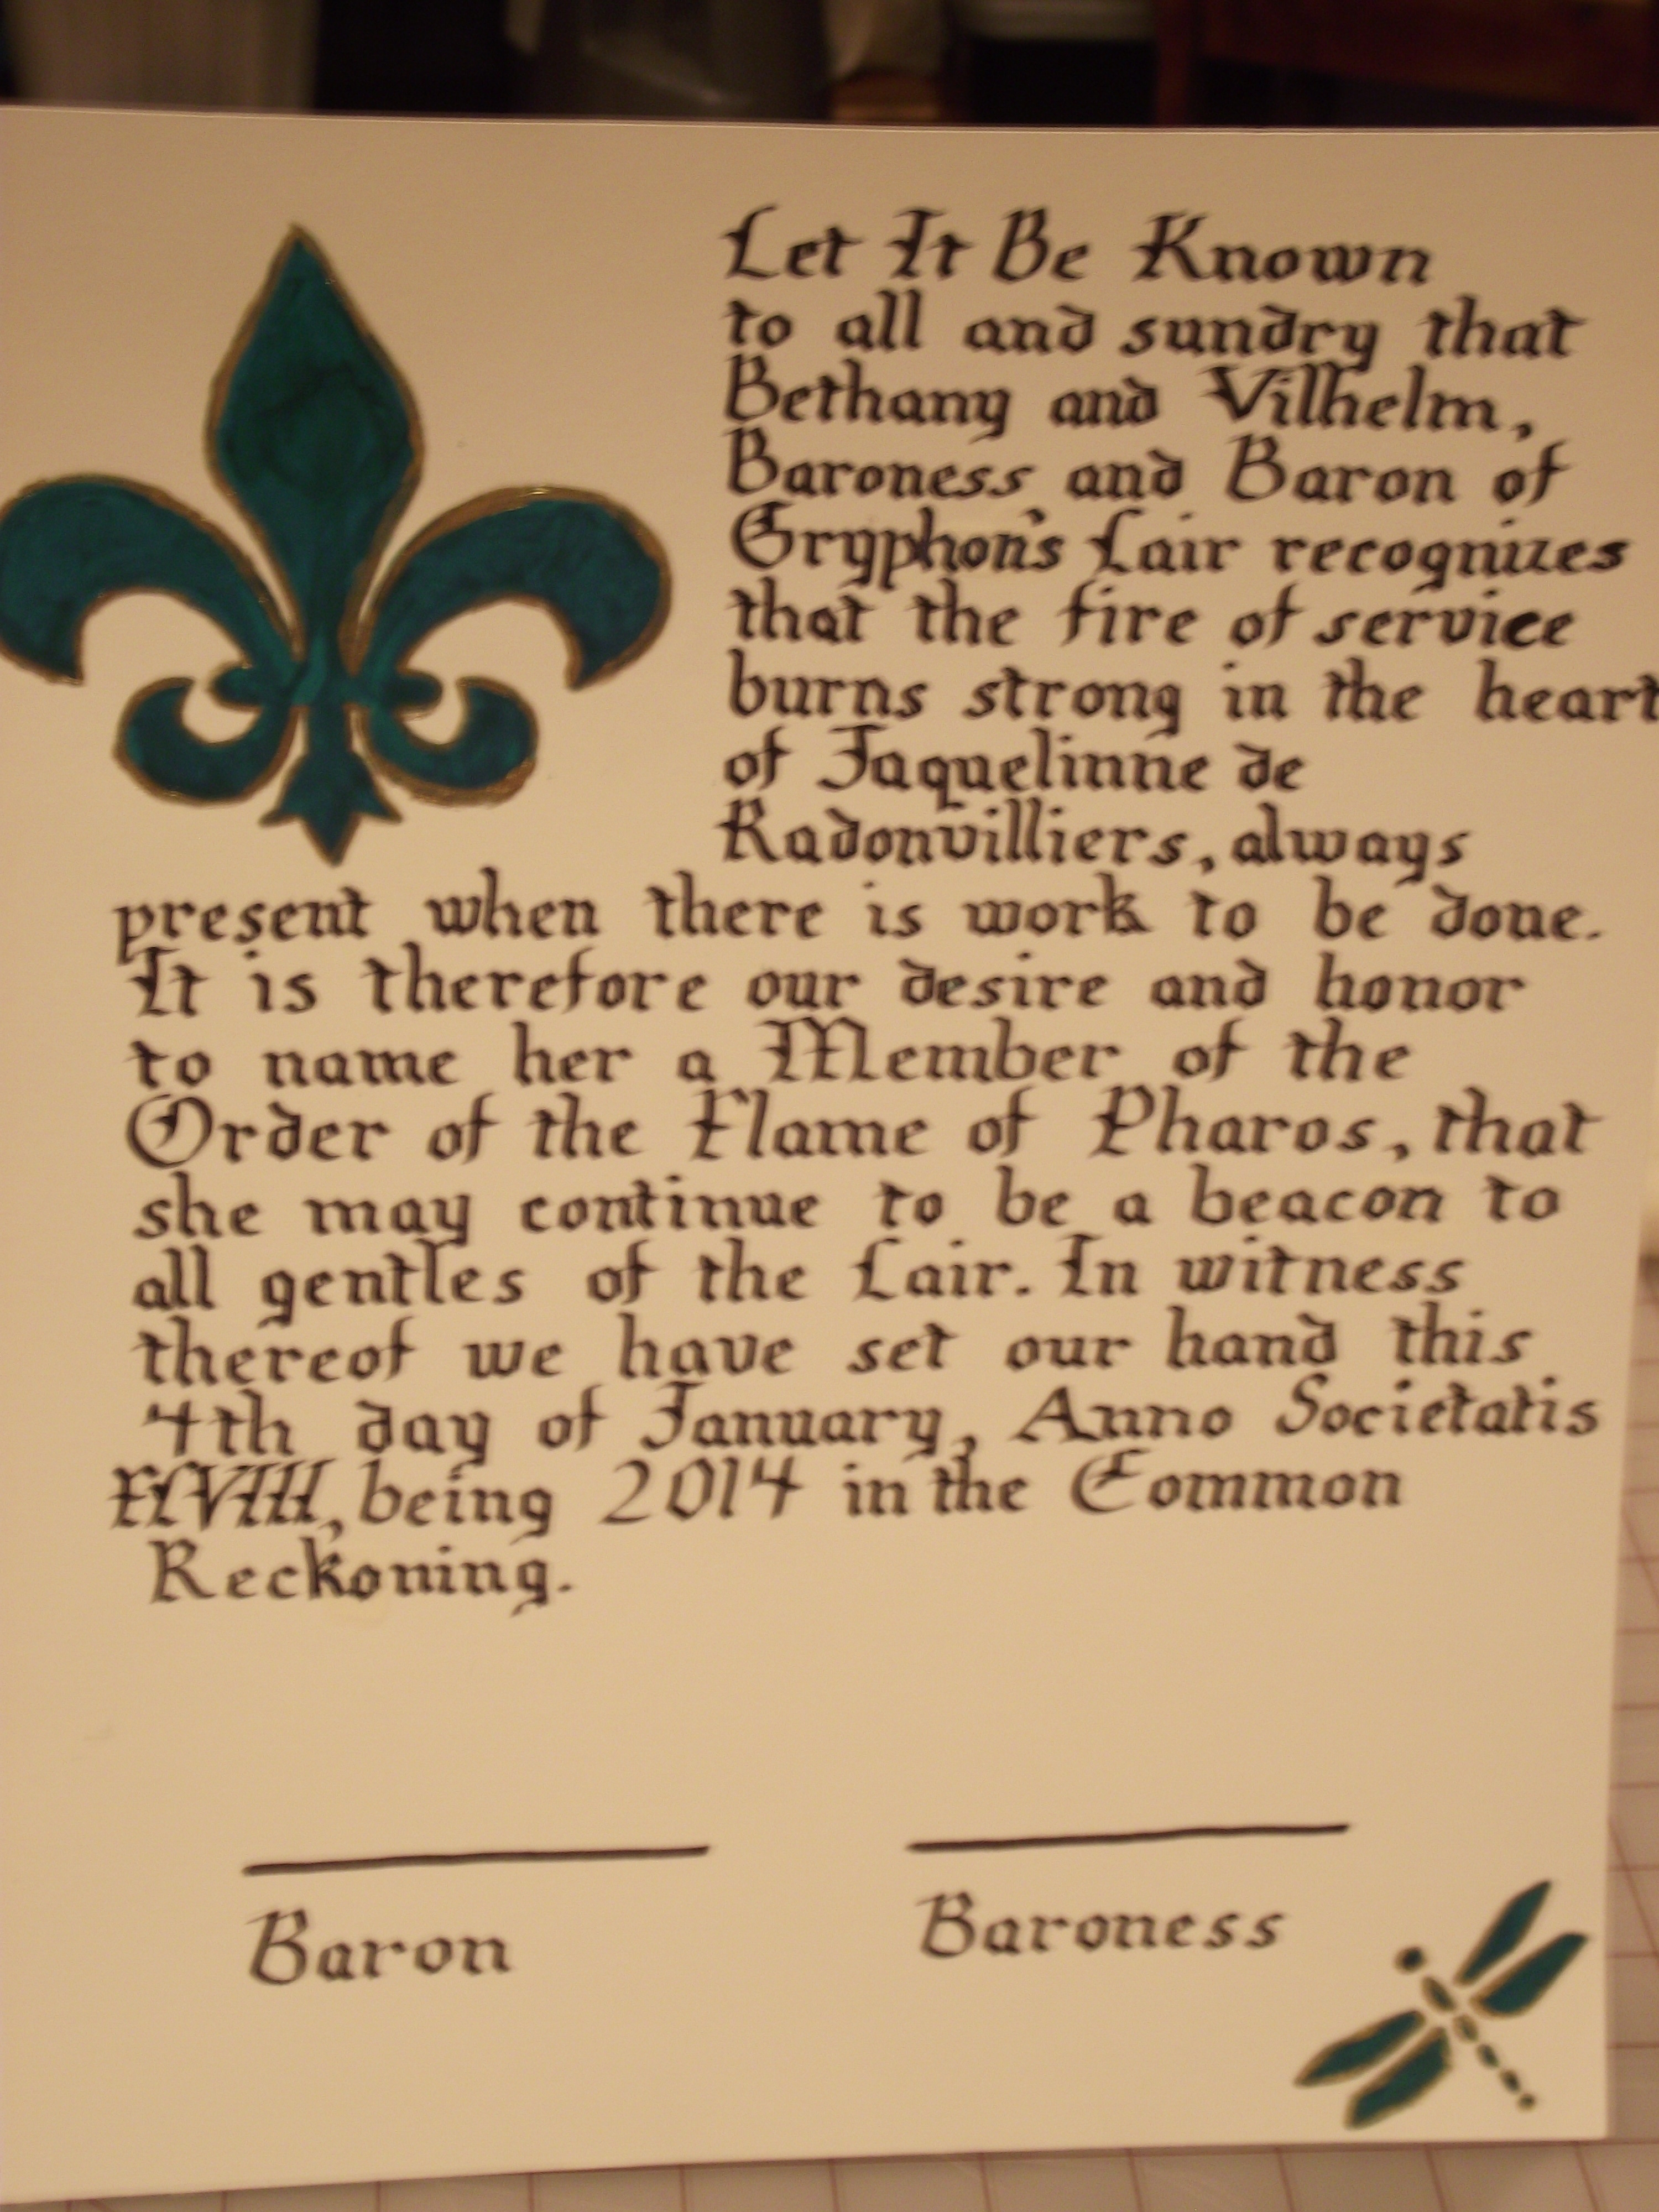 Let It Be Known
to all and sundry that
Bethany and Vilhelm,
Baroness and Baron of
Gryphon's Lair recognizes
that the fire of service
burns strong in the heart
of Jaquelinne de
Radonvilliers, always
present when there is work to be done.
It is therefore our desire and honor
to name her a Member of the
Order of the Flame of Pharos, that
she may continue to be a beacon to
all gentles of the Lair. In witness
thereof we have set our hand this
4th day of January, Anno Societatis
XLVIII, being 2014 in the Common
Reckoning.
Baron
Baroness